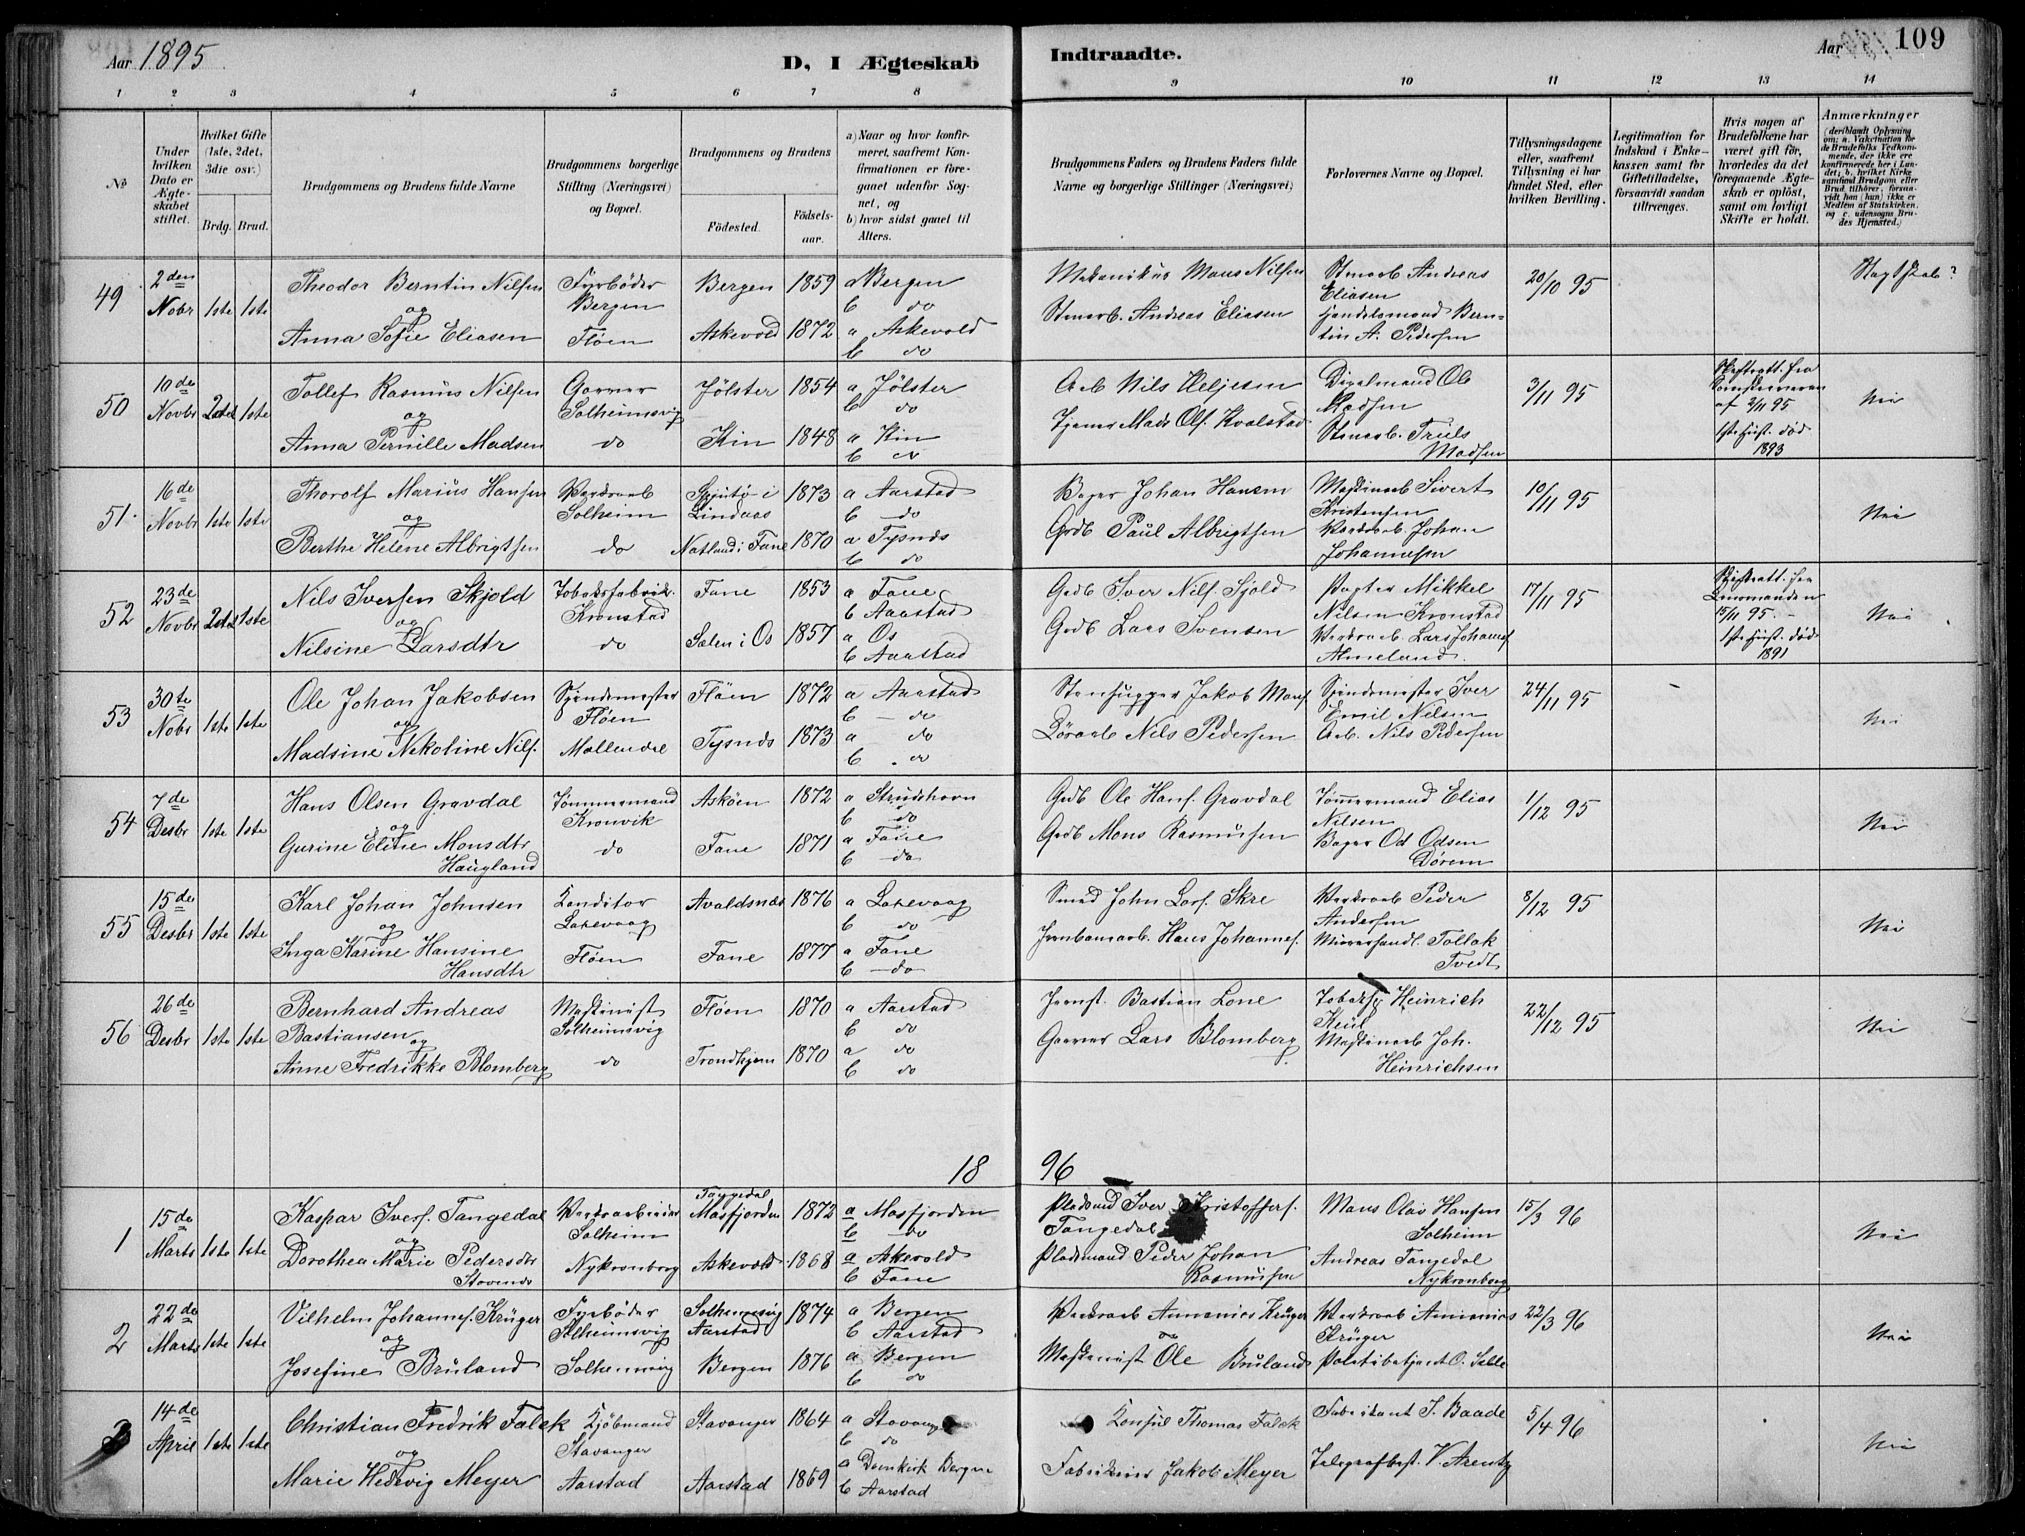 Aar 1895
D, I Ægteskab Indtraadte.
Aar 109
1 2 3 4 5 6 7 8 9 10 11 12 13 14
No
Under hvilken Dato er Ægteskabet stiftet.
Hvilket Gifte (1ste, 2det, 3die osv.)
Brdg. Brud.
Brudgommens og Brudens fulde Navne
Brudgommens borgerlige Stilling (Næringsvei) og Bopæl.
Brudgommens og Brudens
Födested. Födselsaar.
a) Naar og hvor konfirmeret, saafremt Konfirmationen er foregaaet udenfor Sognet, og
b) hvor sidst gaaet til Alters.
Brudgommens Faders og Brudens Faders fulde Navne og borgerlige Stillinger (Næringsvei)
Forlovernes Navne og Bopæl.
Tillysningsdagene eller, saafremt Tillysning ei har fundet Sted, efter hvilken Bevilling.
Legitimation for Indskud i Enkekassen samt for Giftetilladelse, forsaavidt saadan tiltrænges.
Hvis nogen af Brudefolkene har været gift för, hvorledes da det foregaaende Ægteskab er oplöst, samt om lovligt Skifte er holdt.
Anmærkninger
49 2den Nobr 1ste 1ste
Theodor Berntin Nilsen Fyrböder Bergen Bergen 1859 a Bergen b do
og
Anna Sofie Eliasen Flöen Askevold 1872 a Askevold b do
Mekanikus Mons Nilsen
Stenarb. Andreas Eliasen
Stenarb Andreas Eliasen
Handelsmand Berntin A. Pedersen
20/10 95
50 10de Novbr 2det 1ste
Tollef Rasmus Nilsen Garver Solheimsvig Jölster 1854 a Jölster b do
og
Anna Pernille Madsen do Kin 1848 a Kin b do
Arb Nils Heljesen
Tjener Mads Ols. Kvalstad
Ole Madsen
Stenarb. Truls Madsen
3/11 95
1ste Hust. död 1893
Nei
51 16de Novbr 1ste 1ste
Thorolf Marius Hansen Værksarb Solheim Lindaas 1873 a Aarstad b do
og
Berthe Helene Albrigtsen do Natland i Fane 1870 a Tysnæs b do
Bager Johan Hansen
Grdb Paul Albrigtsen
Maskinarb Sivert Kristensen
Værksarb Johan Johannesen
10/11 95
Nei
52 23de Novbr 2det 1ste
Nils Iversen Skjold Tobaksfabrik. Kronstad Fane 1853 a Fane b Aarstad
og
Nilsine Larsdtr do Sælen i Os 1857 a Os b Aarstad
Grdb Iver Nils. Sjold
Grdb Lars Svensen
Pagter Mikkel Nilsen Kronstad
Værksarb. Lars Johannes Almeland.
17/11 95
Skifteatt. fra Lensmanden 15/11 95.
1ste Hust. död 1891
Nei
53 30te Nobr 1ste 1ste
Ole Johan Jakobsen Spindemester Flöen Flöen 1872 a Aarstad b do
og
Madsine Nikoline Nils. Möllendal Tysnæs 1873 a do b do
Stenhugger Jakob Mons
Nils Pedersen
Spindemester Iver Emil Nilsen
Arb. Nils Pedersen
24/11 95
Nei
54 7de Desbr 1ste 1ste
Hans Olsen Gravdal Tömmermand Kronvik Asköen 1872 a Strudshavn b do
og
Gurine Eline Monsdtr Haugland do Fane 1871 a Fane b do
Grdb Ole Hans. Gravdal
Grdb Mons Rasmussen
Tömmermand Elias Nilsen
Bager Od Odsen
1/12 95
Nei
55 15de Desbr 1ste 1ste
Karl Johan Johnsen Konditor Laxevaag Avaldsnæs 1876 a Laxevaag b do
og
Inga Karine Hansine Hansdtr Flöen Fane 1877 a Fane b do
Smed John Lars. Skre
Jernbanearb. Hans Johannes.
Værksarb Peder Andersen
Tollak Tvedt
8/12 95
Nei
56 26de Desbr 1ste 1ste
Bernhard Andreas Bastiansen Maskinist Solheimsvig Flöen 1870 a Aarstad b do
og
Anne Fredrikke Blomberg do Trondhjem 1870 a do b do
Jernst. Bastian Lone
Garver Lars Blomberg
Heinrich Keul
Maskinarb Joh. Heinrichsen
22/12 95
Nei
18 96
1 15de Marts 1ste 1ste
Kaspar Ivers. Tangedal Værksarbeider Solheim Tangedal Masfjorden 1872 a Masfjorden b do
og
Dorothea Marie Pedersdtr Stavenæs Nykronborg Askevold 1868 a Askevold b Fane
Pladsmd Iver Kristoffers. Tangedal
Pladsmand Peder Johan Rasmussen
Mons Olai Hansen Solheim
Andreas Tangedal Nykronborg
15/3 96
Nei
2 22de Marts 1ste 1ste
Vilhelm Johannes. Krüger Fyrböder Solheimsvig Solheimsvig Aarstad 1874 a Bergen b Aarstad
og
Josefine Bruland Solheimsvig Bergen 1876 a Bergen b do
Værksarb Ammonius Krüger
Maskinist Ole Bruland
Værksarb Ammonius Krüger
Politibetjent O. Selle
22/3 96
Nei
3 14de April 1ste 1ste
Christian Fredrik Falck Kjöbmand Stavanger Stavanger 1864 a Stavanger b do
og
Marie Hedevig Meyer Aarstad Aarstad 1869 a Domkirk Bergen b Aarstad
Konsul Thomas Falck
Fabrikeier Jakob Meyer
Fabrikant J. Baade
Telegrafbest. V. Arentz
5/4 96
Nei